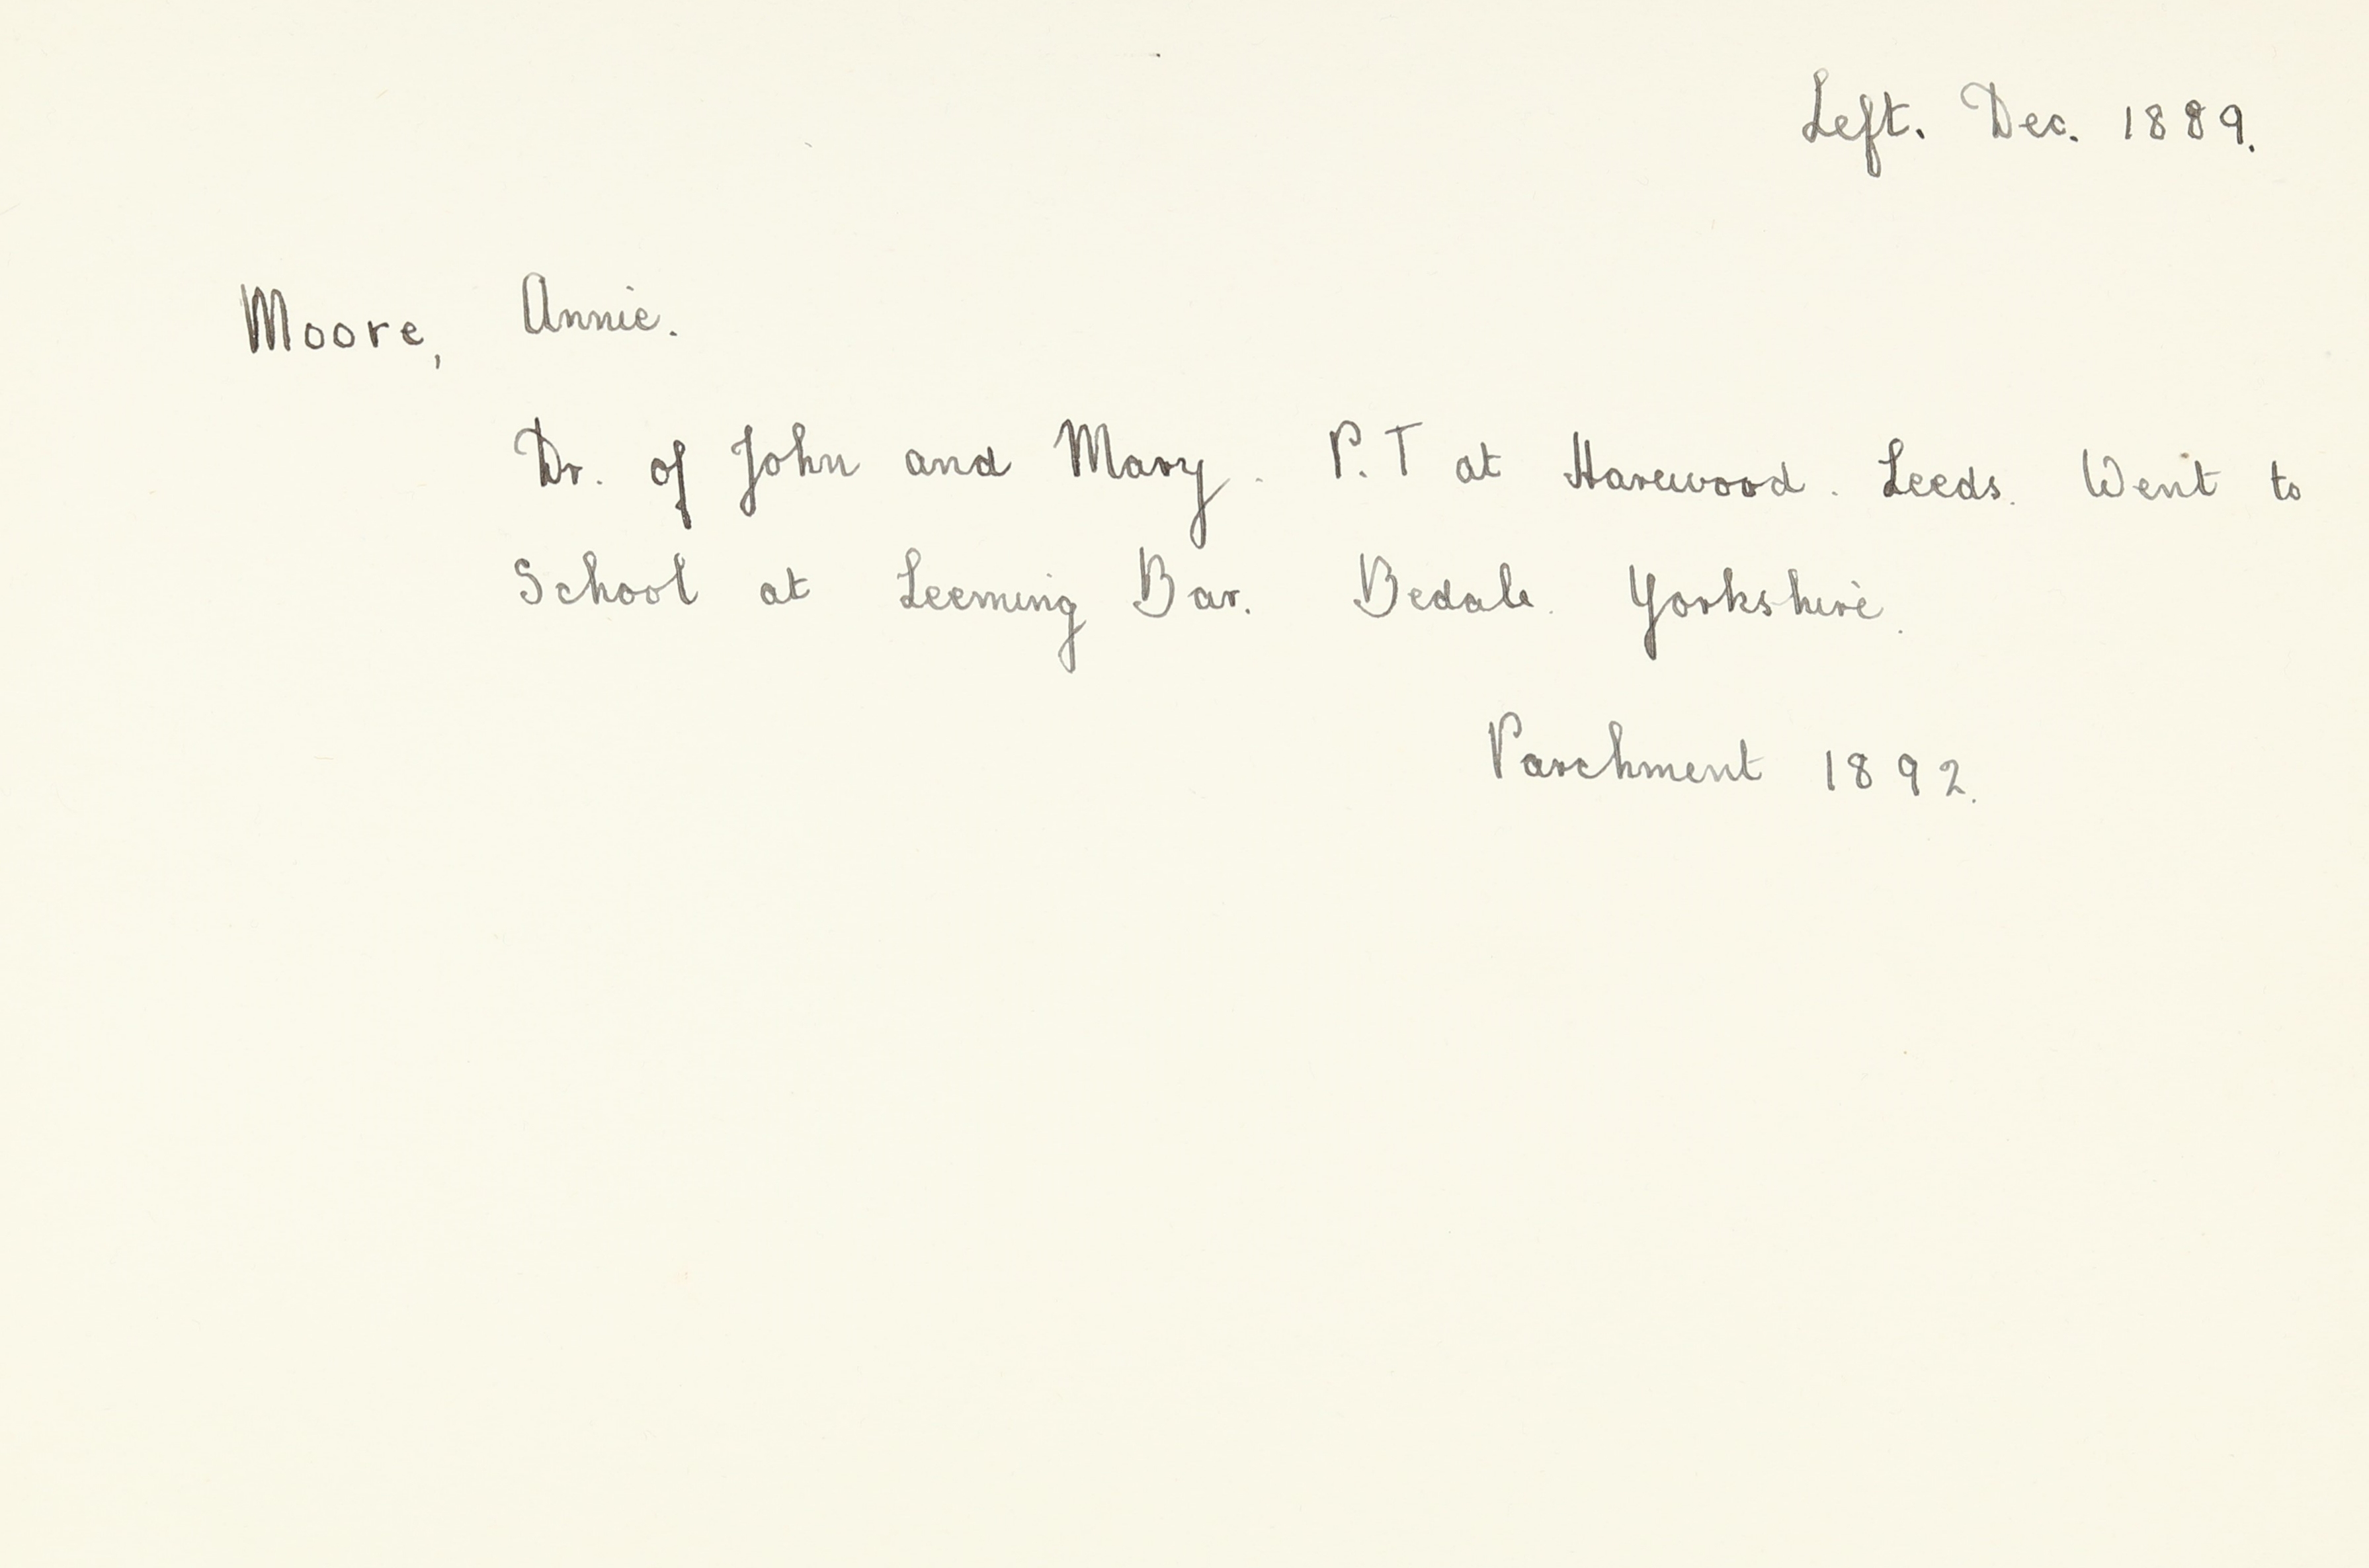 Left. Dec. 1889.
Moore, Annie.
Dr. of John and Mary. P.T at Harewood. Leeds. Went to
School at Leeming Bar. Bedale. Yorkshire.
Parchment 1892.